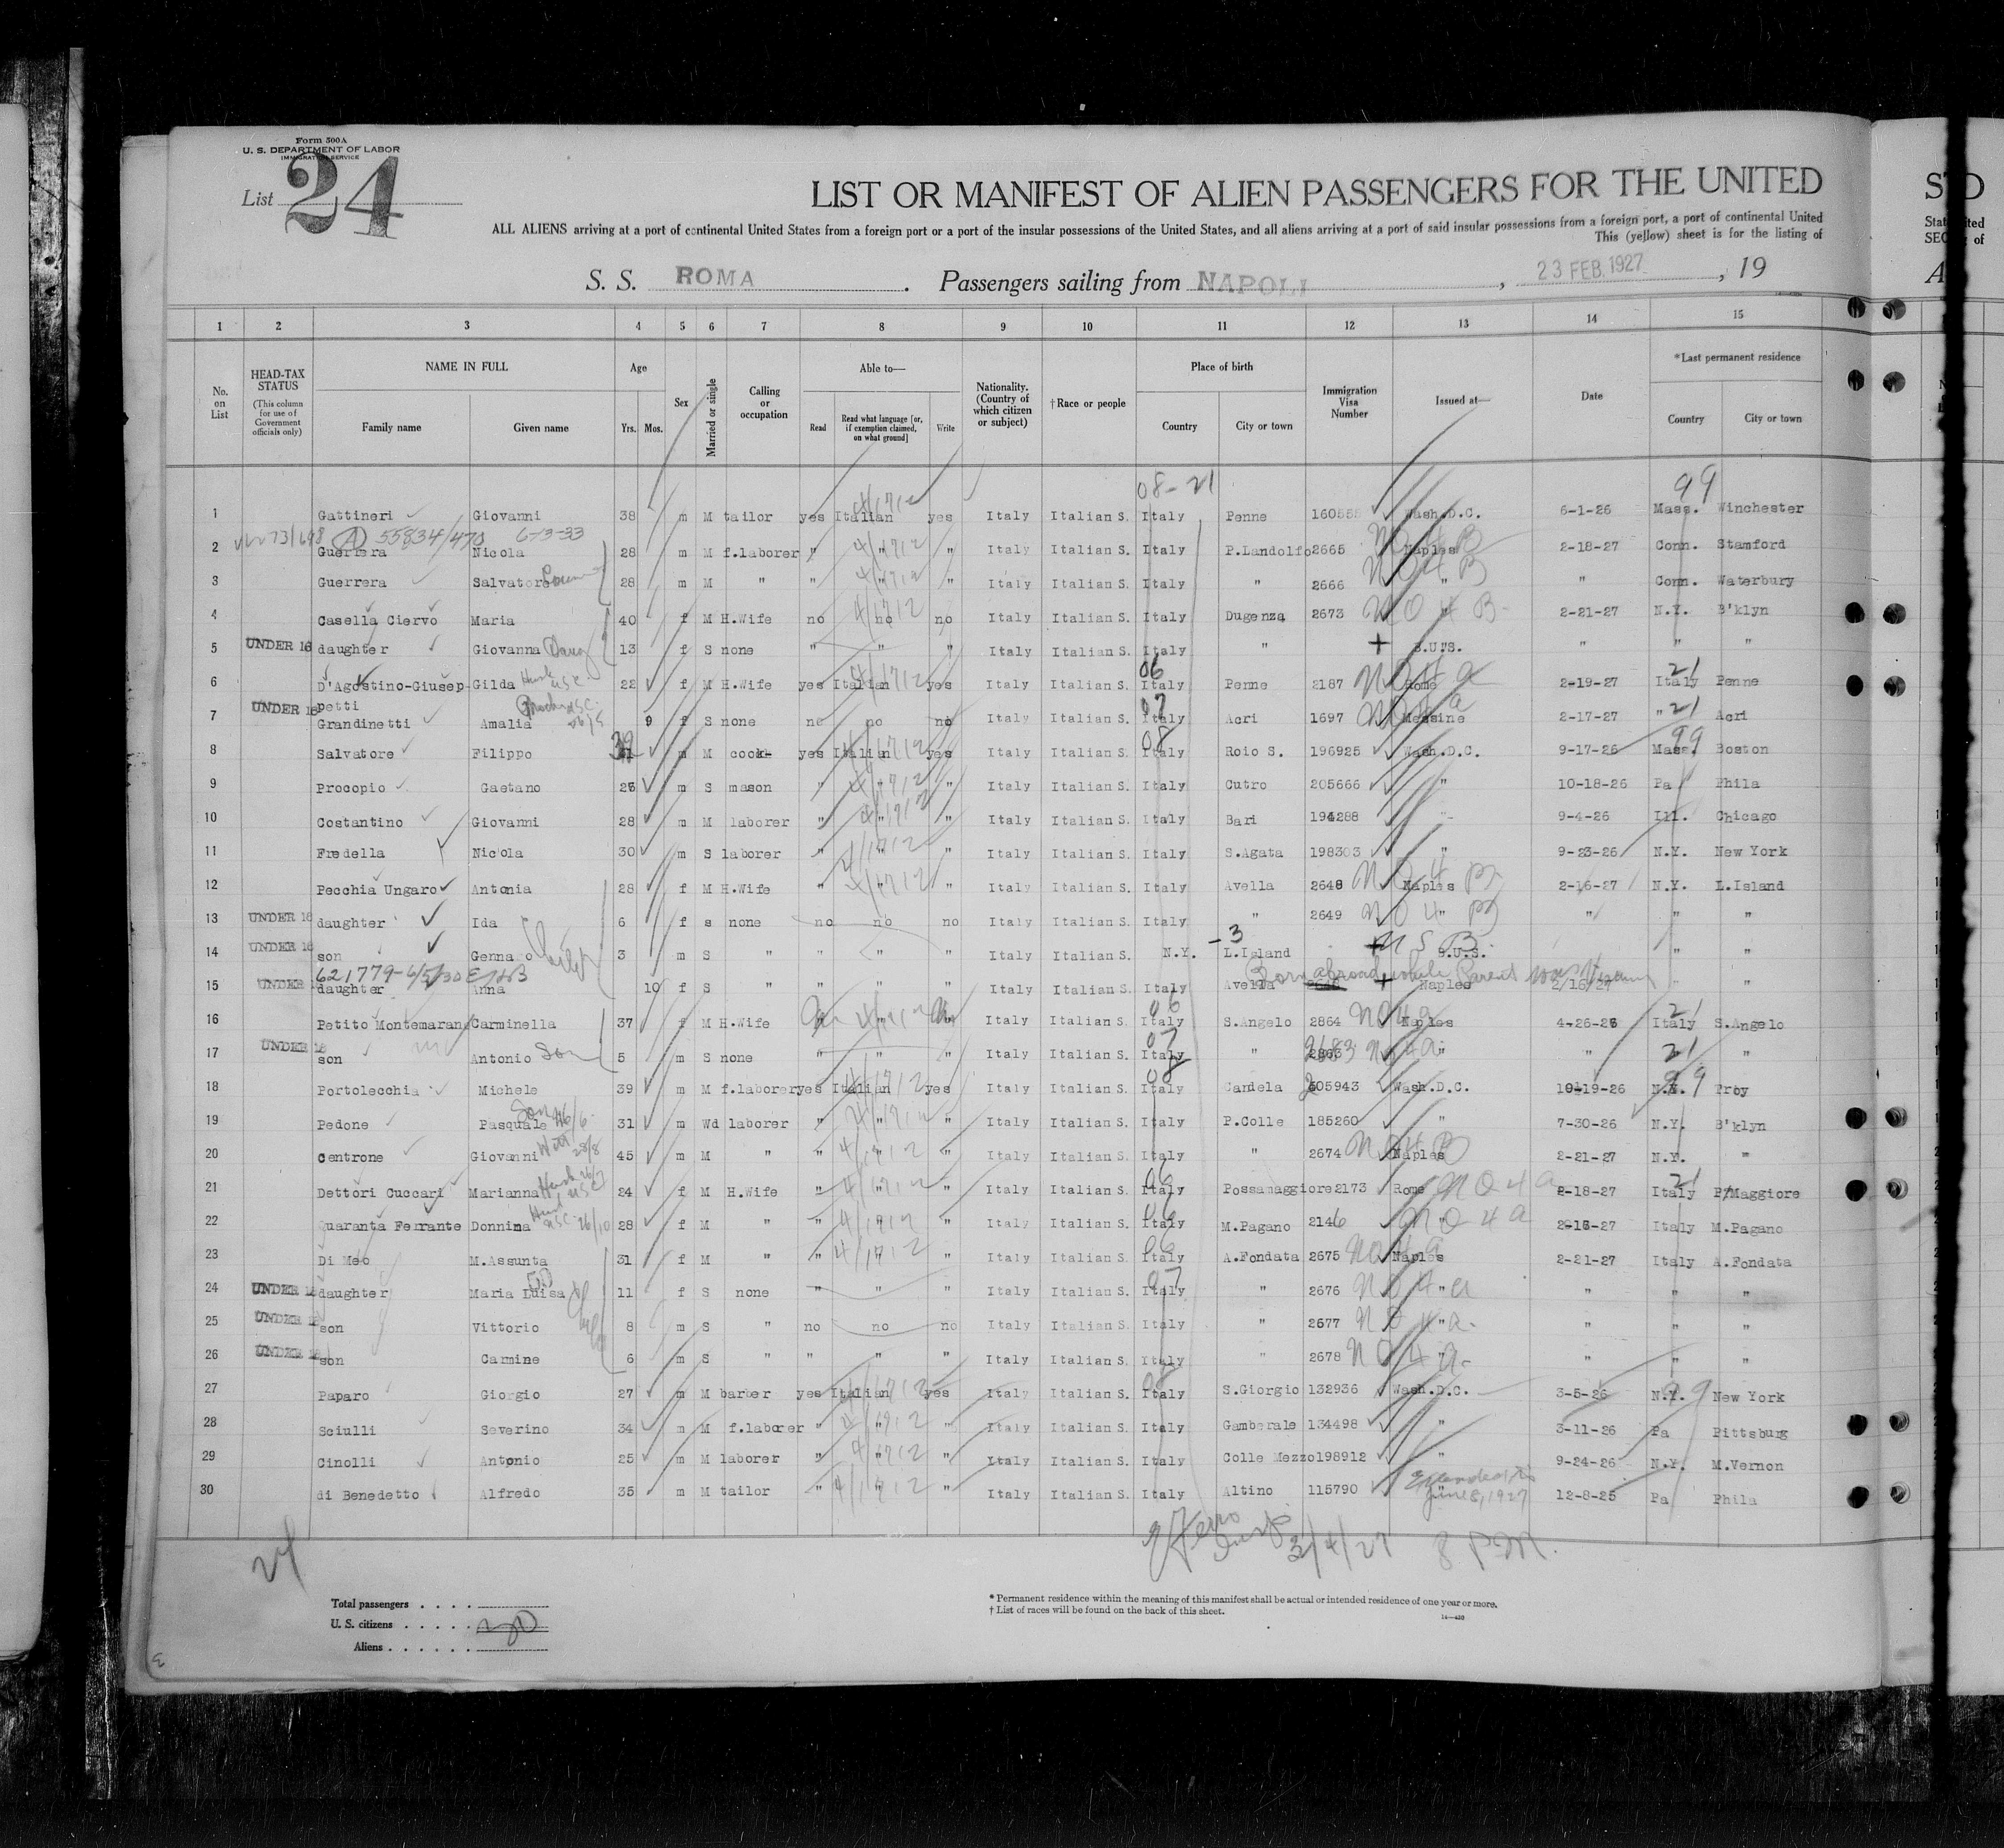 Form 500A
U. S. DEPARTMENT OF LABOR
IMMIGRATION SERVICE
List 24
LIST OR MANIFEST OF ALIEN PASSENGERS FOR THE UNITED
ALL ALIENS arriving at a port of continental United States from a foreign port or a port of the insular possessions of the United States, and all aliens arriving at a port of said insular possessions from a foreign port, a port of continental United
This (yellow) sheet is for the listing of
S. S. ROMA. Passengers sailing from NAPOLI, 23 FEB. 1927, 19
1 2 3 4 5 6 7 8 9 10 11 12 13 14 15
No. on List
HEAD-TAX STATUS (This column for use of Government officials only)
NAME IN FULL Family name Given name
Age Yrs. Mos.
Sex
Married or single
Calling or occupation
Able to— Read Read what language [or, if exemption claimed, on what ground] Write
Nationality. (Country of which citizen or subject)
†Race or people
Place of birth Country City or town
Immigration Visa Number
Issued at—
Date
*Last permanent residence Country City or town
08-21 99
1 Gattineri Giovanni 38 m M tailor yes Italian yes Italy Italian S. Italy Penne Wash.D.C. 6-1-26 Mass. Winchester
55834/470 6-13-33
2 Guerrera Nicola 28 m M f.laborer " " " Italy Italian S. Italy P.Landolfo 2665 Naples 2-18-27 Conn. Stamford
3 Guerrera Salvatore 28 m M " " " " Italy Italian S. Italy " 2666 " " Conn. Waterbury
4 Casella Ciervo Maria 40 f M H.Wife no no no Italy Italian S. Italy Dugenza 2673 2-21-27 N.Y. B'klyn
5 UNDER 16 daughter Giovanna 13 f S none " " " Italy Italian S. Italy " S.U.S. " " "
6 D'Agostino-Giusep-petti Gilda 22 f M H.Wife yes Italian yes Italy Italian S. Italy Penne 2187 Rome 2-19-27 Italy Penne
7 UNDER 16 Grandinetti Amalia 9 f S none no no no Italy Italian S. Italy Acri 1697 Messine 2-17-27 " Acri
8 Salvatore Filippo 39 m M cook yes Italian yes Italy Italian S. Italy Roio S. 196925 Wash.D.C. 9-17-26 Mass. Boston
9 Procopio Gaetano 26 m S mason " " " Italy Italian S. Italy Cutro 205666 " 10-18-26 Pa Phila
10 Costantino Giovanni 28 m M laborer " " " Italy Italian S. Italy Bari 194288 " 9-4-26 Ill. Chicago
11 Fredella Nicola 30 m S laborer " " " Italy Italian S. Italy S.Agata 198303 " 9-23-26 N.Y. New York
12 Pecchia Ungaro Antonia 28 f M H.Wife " " " Italy Italian S. Italy Avella 2648 Naples 2-16-27 N.Y. L.Island
13 UNDER 16 daughter Ida 6 f s none no no no Italy Italian S. Italy " 2649 " " " "
14 UNDER 16 son Gennaro 3 m S " " " " Italy Italian S. N.Y. L.Island S.U.S. " "
621779-6/5/30 Born abroad while Parent was
15 UNDER daughter Anna 10 f S " " " " Italy Italian S. Italy Avella Naples 2/16/27 " "
16 Petito Montemarano Carminella 37 f M H.Wife " " Italy Italian S. Italy S.Angelo 2864 Naples 4-26-26 Italy S.Angelo
17 UNDER 16 son Antonio Son 5 m S none " " " Italy Italian S. Italy " " " "
18 Portolecchia Michele 39 m M f.laborer yes Italian yes Italy Italian S. Italy Candela 205943 Wash.D.C. 10-19-26 N.Y. Troy
19 Pedone Pasquale 31 m Wd laborer " " " Italy Italian S. Italy P.Colle 185260 " 7-30-26 N.Y. B'klyn
20 Centrone Giovanni 45 m M " " " " Italy Italian S. Italy " 2674 Naples 2-21-27 N.Y. "
21 Dettori Cuccari Marianna 24 f M H.Wife " " " Italy Italian S. Italy Possamaggiore 2173 Rome 2-18-27 Italy P/Maggiore
22 Quaranta Ferrante Donnina 28 f M " " " " Italy Italian S. Italy M.Pagano 2146 " 2-16-27 Italy M.Pagano
23 Di Meo M.Assunta 31 f M " " " " Italy Italian S. Italy A.Fondata 2675 Naples 2-21-27 Italy A.Fondata
24 UNDER 16 daughter Maria Luisa 11 f S none " " " Italy Italian S. Italy " 2676 " " " "
25 UNDER 16 son Vittorio 8 m S " no no no Italy Italian S. Italy " 2677 " " " "
26 UNDER 16 son Carmine 6 m S " " " " Italy Italian S. Italy " 2678 " " " "
27 Paparo Giorgio 27 m M barber yes Italian yes Italy Italian S. Italy S.Giorgio 132936 Wash.D.C. 3-5-26 N.Y. New York
28 Sciulli Severino 34 m M f.laborer " " " Italy Italian S. Italy Gamberale 134498 " 3-11-26 Pa Pittsburg
29 Cinolli Antonio 25 m M laborer " " " Italy Italian S. Italy Colle Mezzo 198912 " 9-24-26 N.Y. M.Vernon
30 di Benedetto Alfredo 35 m M tailor " " " Italy Italian S. Italy Altino 115790 Extended to June 8, 1927 12-8-25 Pa Phila
3/4/27 8 P.M.
Total passengers
U. S. citizens
Aliens
* Permanent residence within the meaning of this manifest shall be actual or intended residence of one year or more.
† List of races will be found on the back of this sheet.
14—430